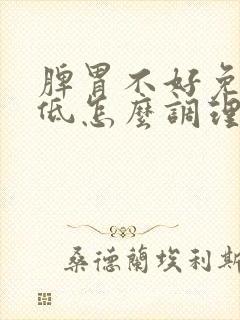 脾胃不好免
低怎麼調理
桑德蘭埃利斯